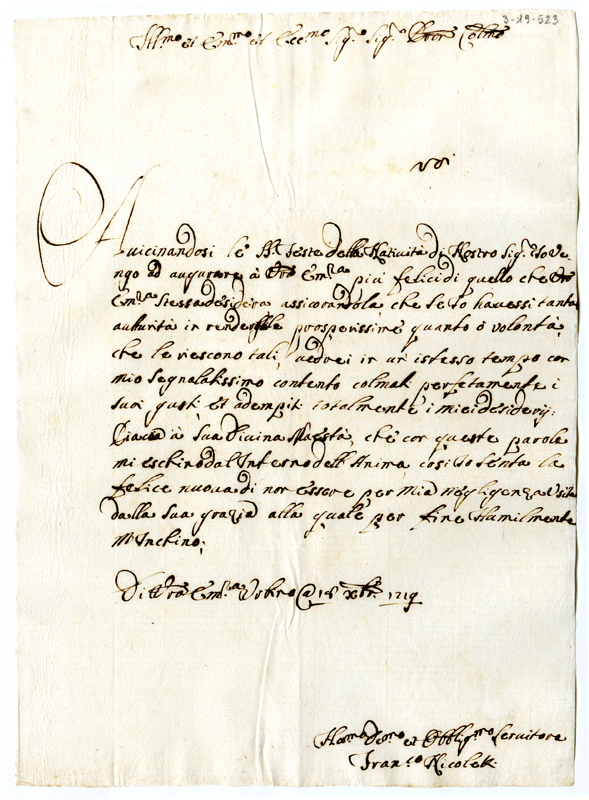 3-19-523
Ill.mo et Em.mo et Ecc.mo Sig.r Sig.r Pron Colmo
Avicinandosi le SS.te Feste della Natività di Nostro Sig.re Io Ve-
ngo ad augurare à Vra Em.za più felici di quello che Vra
Em.za Stessa desidera assicorandola, che se Io havessi tanta
auturità in renderglile prosperissime quanto ò volontà,
che le riescono tali, vedrei in un istesso tempo con
mio Segnalatissimo contento colmati perfetamente i
suoi gusti et adempiti totalmente i miei desiderij:
Piaccia à Sua Divina Maestà, che con queste parole
mi eschino dal Interno dell Anima così Io Senta la
felice nuova di non essere per mia negligenza
dalla Sua grazia alla quale per fine Humilmente
M'Inchino;
Di Vra Em.za Urbino @ 18 Xbr. 1719
Hum.mo De.mo et Obblig.mo Servitore
Fran.co Nicoleti